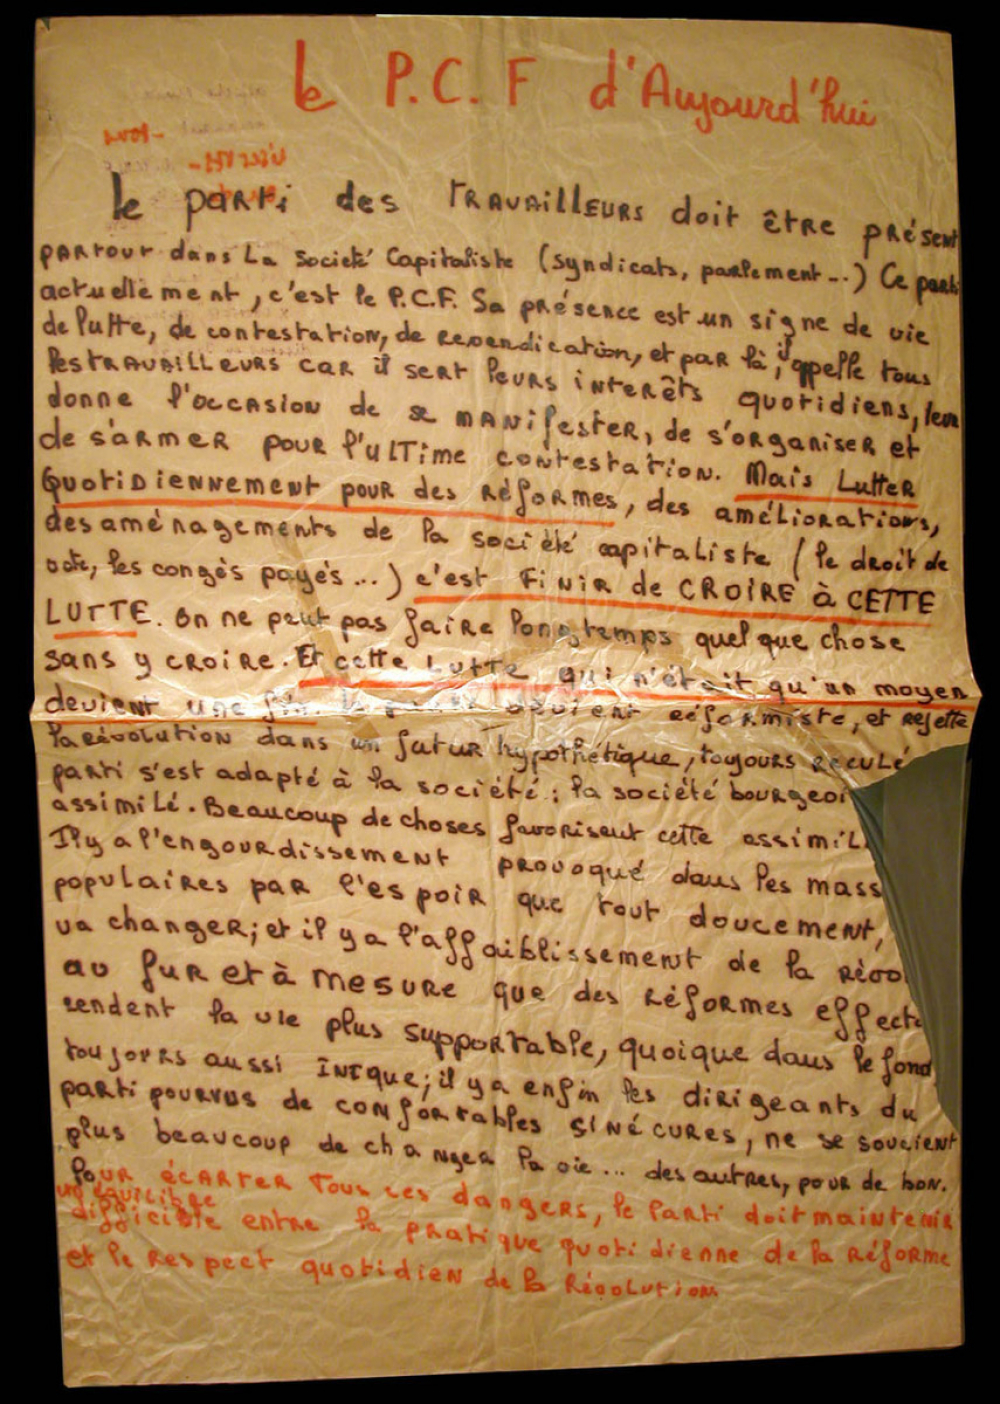 le P.C.F d'Aujourd'hui
le parti des TRAVAILLEURS doit être présent
partout dans la Société Capitaliste (syndicats, parlement...) Ce parti
actuellement, c'est le P.C.F. Sa présence est un signe de vie
de lutte, de contestation, de revendication, et par là, il appelle tous
les TRAVAILLEURS car il sert leurs interêts quotidiens, leur
donne l'occasion de se manifester, de s'organiser et
de s'armer pour l'ultime contestation. Mais Lutter
Quotidiennement pour des réformes, des améliorations,
des aménagements de la société capitaliste (le droit de
vote, les congès payés...) c'est Finir de CROIRE à CETTE
LUTTE. On ne peut pas faire longtemps quelque chose
sans y croire. Et cette Lutte qui n'était qu'un moyen
devient une fin. devient réformiste, et rejette
la révolution dans un futur hypothétique, toujours reculé
parti s'est adapté à la société; la société bourgeoi
assimilé. Beaucoup de choses favorisent cette assimil
Il y a l'engourdissement provoqué dans les mass
populaires par l'espoir que tout doucement,
va changer; et il y a l'affaiblissement de la révo
au fur et à mesure que des réformes effect
rendent la vie plus supportable, quoique dans le fond
toujours aussi inique; il y a enfin les dirigeants du
parti pourvus de confortables sinécures, ne se soucient
plus beaucoup de changer la vie... des autres, pour de bon.
Pour écarter Tous ces dangers, le Parti doit maintenir
un équilibre
difficible entre la pratique quotidienne de la réforme
et le respect quotidien de la Révolution